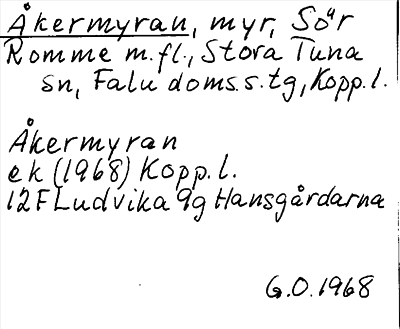 Åkermyran, myr, Sör
Romme m.fl., Stora Tuna
sn, Falu doms.s.tg, Kopp.l.
Åkermyran
ek (1968) Kopp.l.
12F Ludvika 9g Hansgårdarna
G.O. 1968